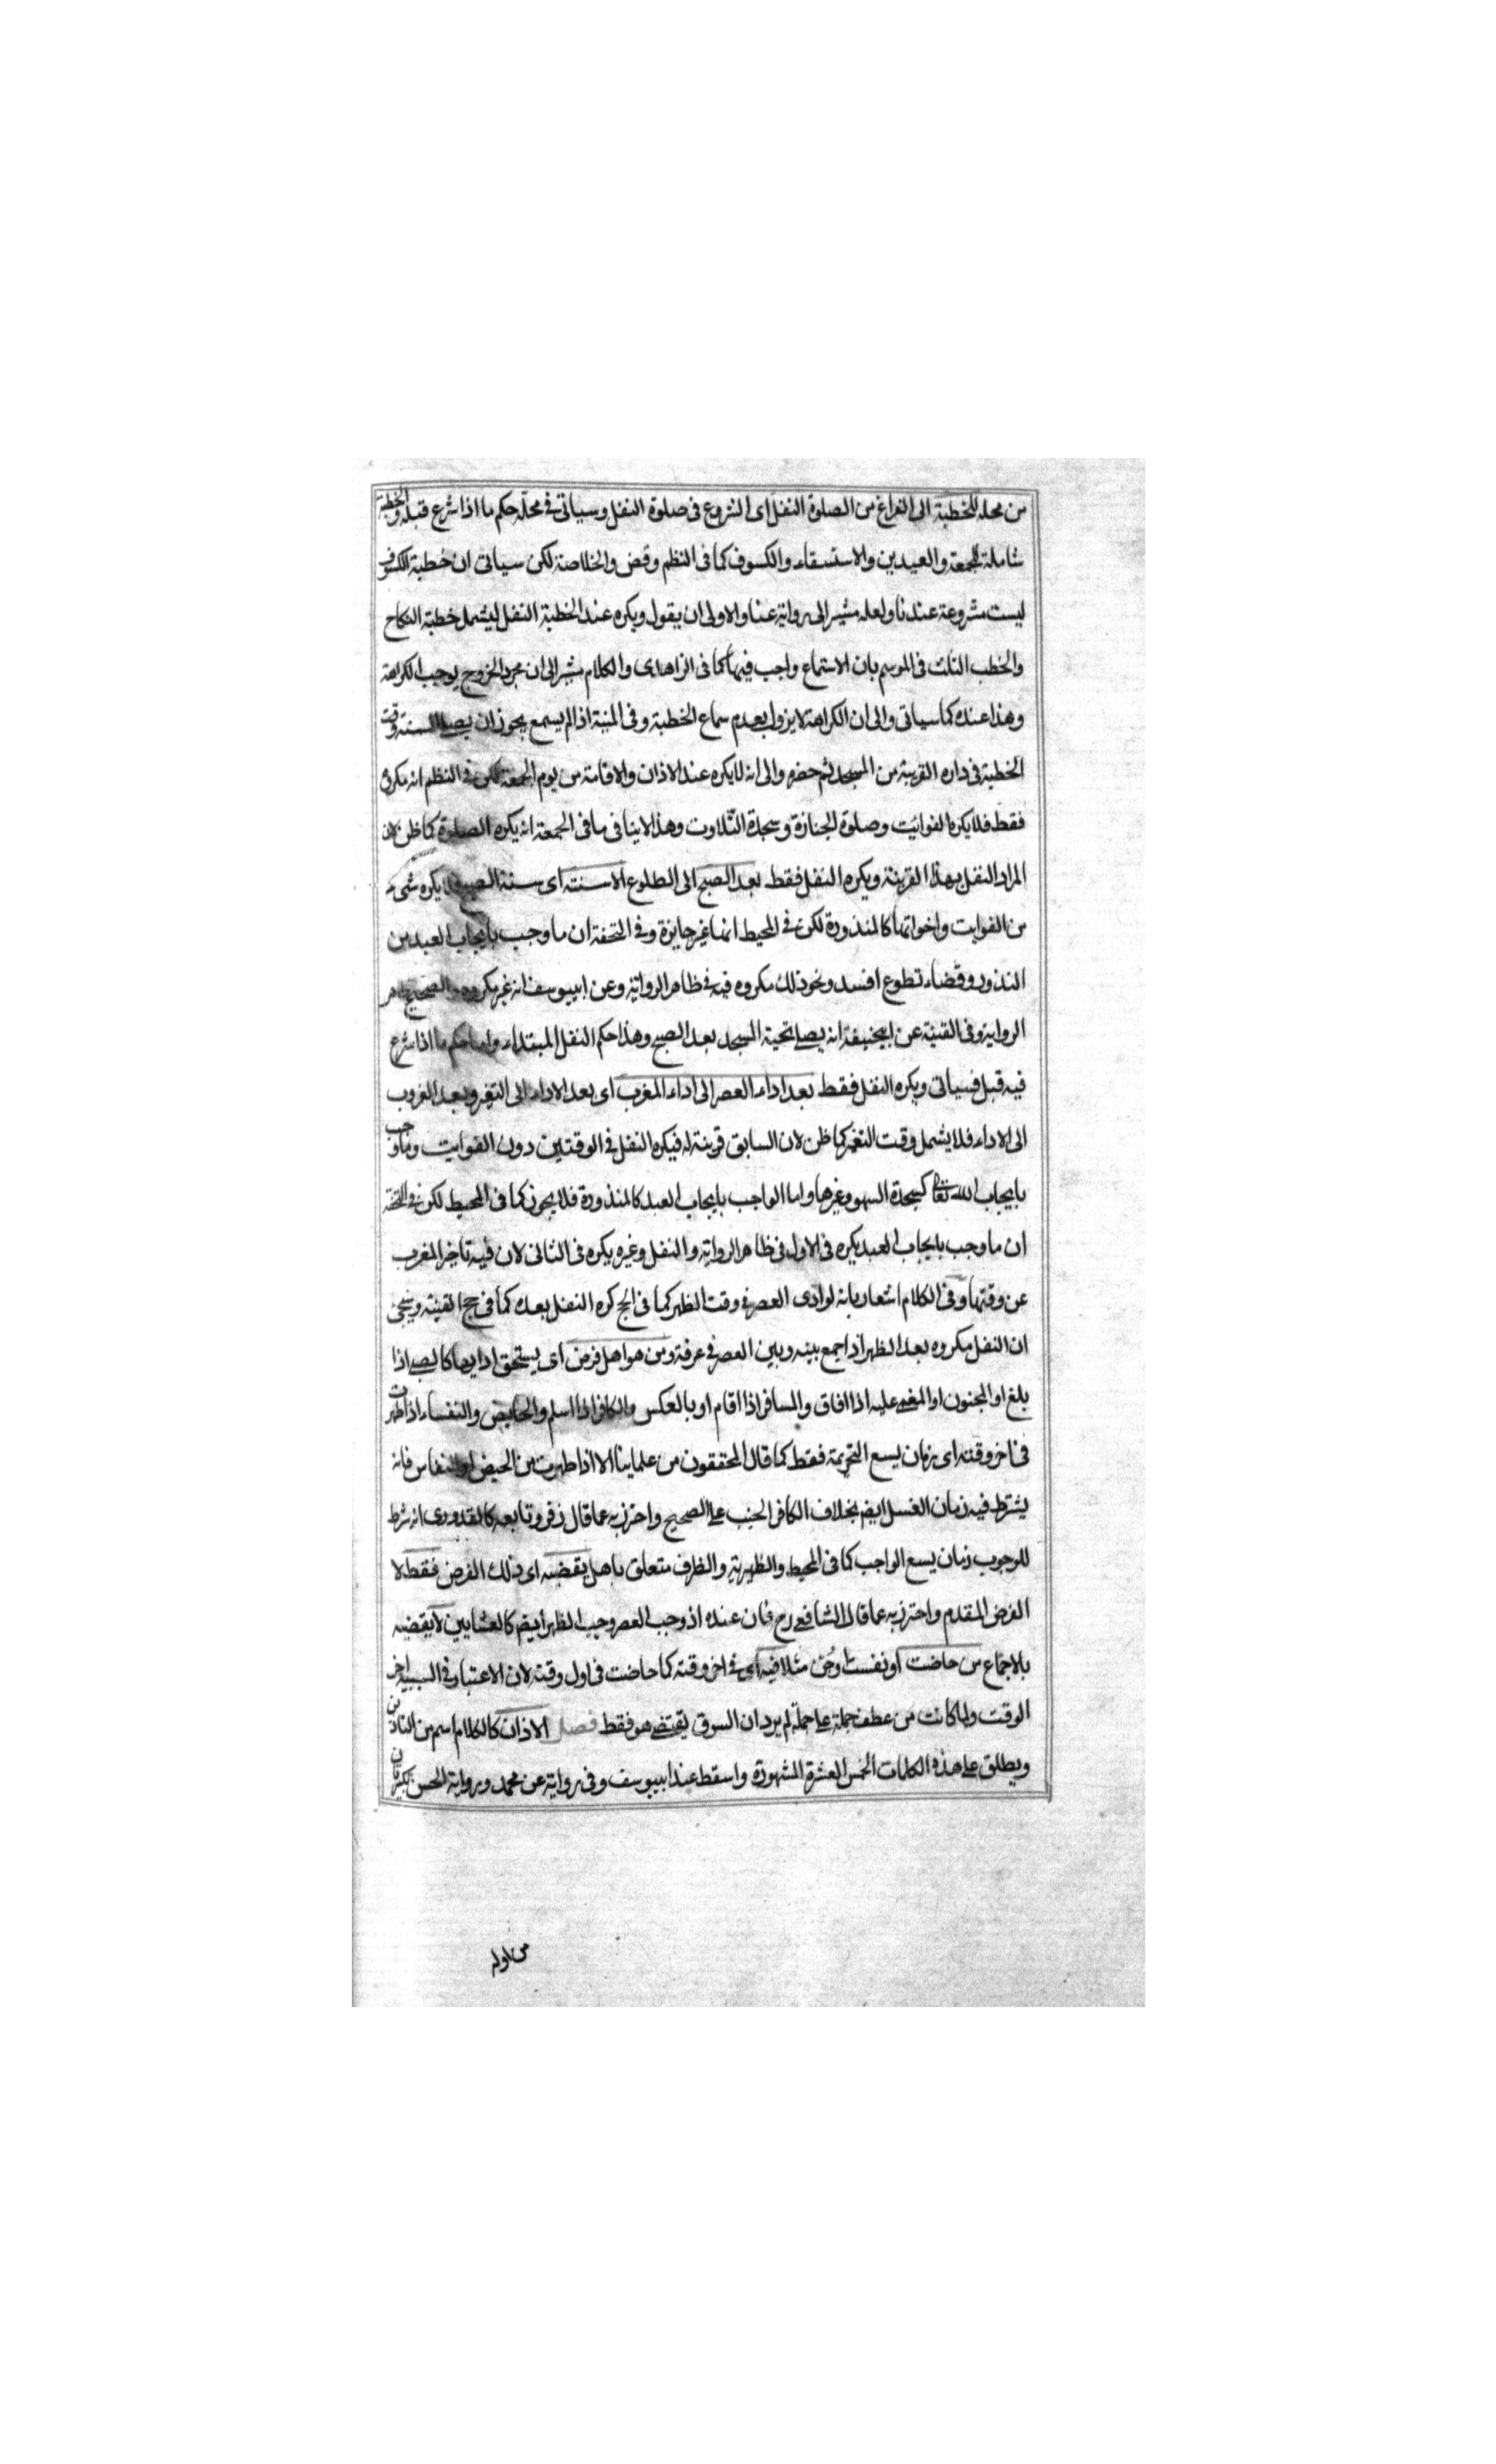 من محله للخطبة الى الفراغ من الصلوة النفل اى الشروع فى صلوة النفل وسياتى فى محله حكم ما اذا شرع قبله والخطبة
شاملة للجمعة والعيدين والاستسقاء والكسوف كما فى النظم وقض والخلاصة لكن سياتى ان خطبة الكسوف
ليست مشروعة عندنا ولعله مشير الى رواية عنا والاولى ان يقول ويكره عند الخطبة النفل ليشمل خطبة النكاح
والخطب الثلث فى الموسم بان الاستماع واجب فيها كما فى الزاهدى والكلام مشير الى ان مجرد الخروج يوجب الكراهة
وهذا عنده كما سياتى والى ان الكراهة لا يزول بعدم سماع الخطبة وفى المنية اذا لم يسمع يجوز ان يصلى السنة وقت
الخطبة فى داره القريبة من المسجد ثم حضر والى انه لا يكره عند الاذان والاقامة من يوم الجمعة لكن فى النظم انه مكروه
فقط فلا يكره الفوائت وصلوة الجنازة وسجدة التلاوت وهذا لا ينافى ما فى الجمعة انه يكره الصلوة كما ظن لان
المراد النفل بهذا القرينة ويكره النفل فقط بعد الصبح الى الطلوع الا سنته اى سنة الصبح فلا يكره شىء
من الفوايت واخواتها كالمنذورة لكن فى المحيط انها غير جايزة وفى التحفة ان ما وجب بايجاب العبد من
النذور وقضاء تطوع افسد ونحو ذلك مكروه فيه فى ظاهر الرواية وعن ابيوسف انه غير مكروه والصحيح ظاهر
الرواية وفى القنية عن ابيحنيفة انه يصلى تحية المسجد بعد الصبح وهذا حكم النفل المبتداء واما حكم ما اذا شرع
فيه قبل فسياتى ويكره النفل فقط بعد اداء العصر الى اداء المغرب اى بعد الاداء الى التغير وبعد الغروب
الى الاداء فلا يشمل وقت التغير كما ظن لان السابق قرينة له فيكره النفل فى الوقتين دون الفوايت وما وجب
بايجاب الله تعالى كسجدة السهو وغيرها واما الواجب بايجاب العبد كالمنذورة فلا يجوز كما فى المحيط لكن فى التحفة
ان ما وجب بايجاب العبد يكره فى الاول فى ظاهر الرواية والنفل وغيره يكره فى الثانى لان فيه تاخير المغرب
عن وقتها وفى الكلام اشعار بانه لو ادى العصر فى وقت الظهر كما فى الحج كره النفل بعده كما فى حج القنية وسيجئ
ان النفل مكروه بعد الظهر اذا جمع بينه وبين العصر فى عرفة ومن هو اهل فرض اى يستحق اداءها كالصبى اذا
بلغ او المجنون او المغمى عليه اذا افاق والمسافر اذا اقام او بالعكس والكافر اذا اسلم والحايض والنفساء اذا طهرت
فى اخر وقته اى زمان يسع التحريمة فقط كما قال المحققون من علماينا الا اذا طهرت من الحيض او النفاس فانه
يشترط فيه زمان الغسل ايضم بخلاف الكافر الجنب على الصحيح واحترز به عما قال زفر وتابعه كالقدورى انه شرط
للوجوب زمان يسع الواجب كما فى المحيط والظهيرية والظرف متعلق باهل يقضيه اى ذلك الفرض فقط لا
الفرض المقدم واحترز به عما قال الشافعى رح فان عنده اذ وجب العصر وجب الظهر ايضم كالعشايين لا يقضيه
بالاجماع من حاضت او نفست او جن مثلا فيه اى فى اخر وقته كما حاضت فى اول وقته لان الاعتبار فى السببية اخر
الوقت ولما كانت من عطف جملة على جملة لم يرد ان السوق يقتضى هو فقط فصل الاذان كالكلام اسم من التاذين
ويطلق على هذه الكلمات الخمس العشرة المشهورة واسقط عند ابيوسف وفى رواية عن محمد ورواية الحسن تكبيرتان
من اوله